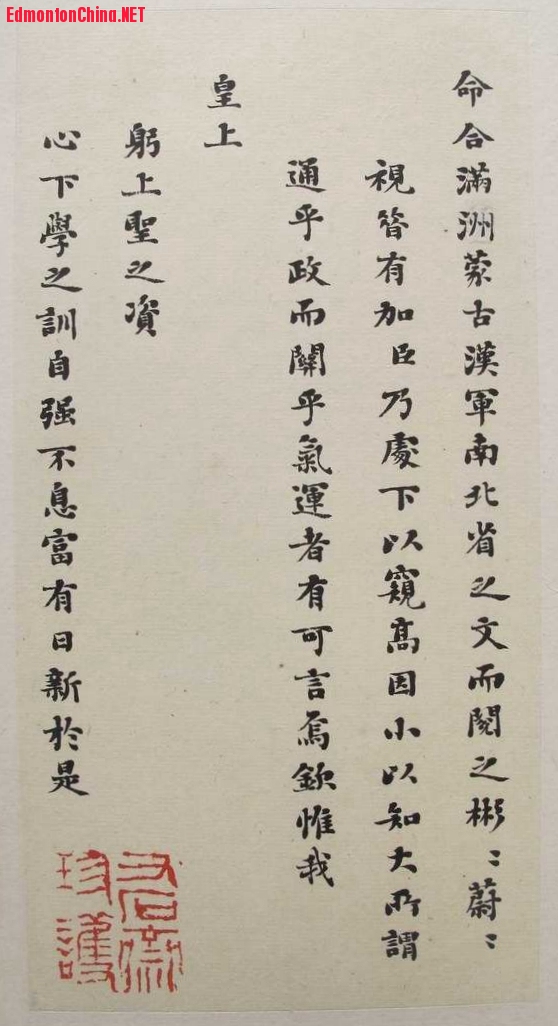 EdmontonChina.NET
命合滿洲蒙古漢軍南北省之文而閱之彬〻蔚〻
視昝有加臣乃處下以窺高因小以知大所謂
通乎政而關乎氣運者有可言焉欽惟我
皇上
躬上聖之資
心下學之訓自强不息富有日新於是
友石齋
珍護